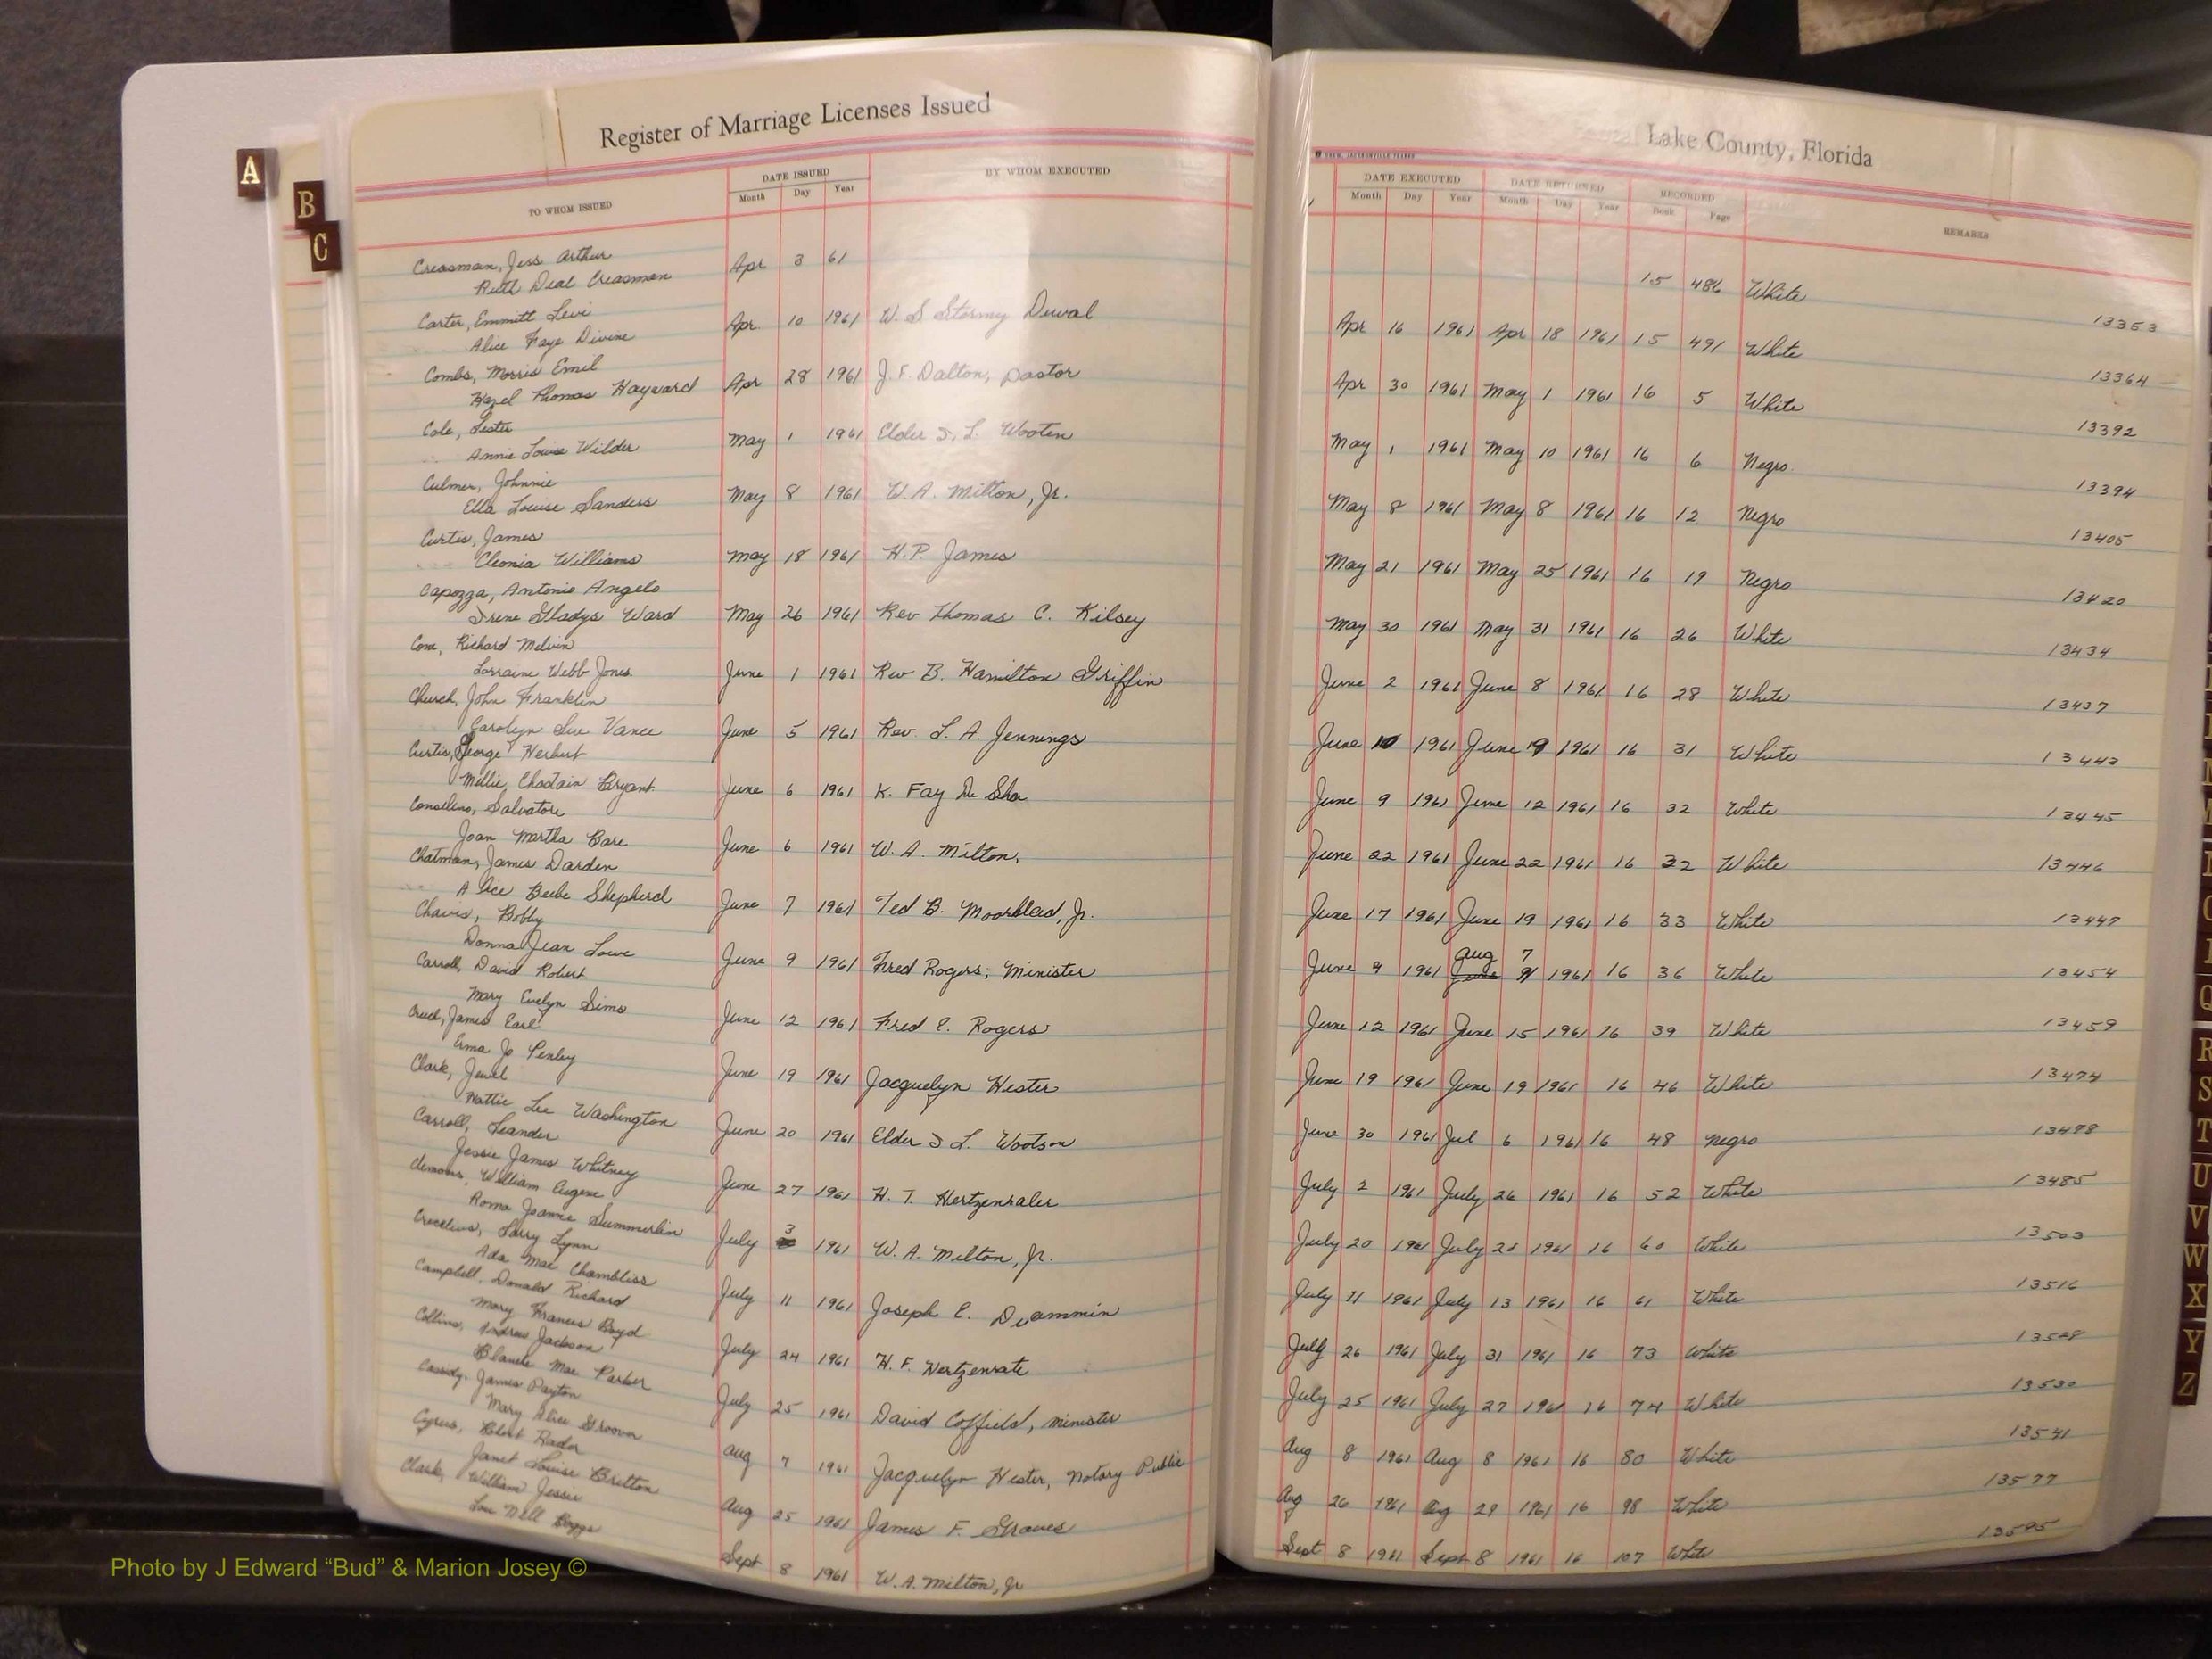 Register of Marriage Licenses Issued
Lake County, Florida
A
B
C
TO WHOM ISSUED
DATE ISSUED
Month Day Year
BY WHOM EXECUTED
DATE EXECUTED
Month Day Year
DATE RETURNED
Month Day Year
RECORDED
Book Page
REMARKS
Creasman, Jess Arthur
Ruth Deal Creasman
Apr 3 61
15 486 White 13353
Carter, Emmitt Levi
Alice Faye Divine
Apr. 10 1961 W. S. Stormy Duval
Apr 16 1961 Apr 18 1961 15 491 White 13364
Combs, Morris Emil
Hazel Thomas Hayward
Apr 28 1961 J. F. Dalton, Pastor
Apr 30 1961 May 1 1961 16 5 White 13392
Cole, Lester
Annie Louise Wilder
May 1 1961 Elder S. L. Wooten
May 1 1961 May 10 1961 16 6 Negro. 13394
Culmer, Johnnie
Ella Louise Sanders
May 8 1961 W. A. Milton, Jr.
May 8 1961 May 8 1961 16 12 Negro 13405
Curtis, James
Cleonia Williams
May 18 1961 H. P. James
May 21 1961 May 25 1961 16 19 Negro 13420
Capozza, Antonio Angelo
Irene Gladys Ward
May 26 1961 Rev Thomas C. Kilsey
May 30 1961 May 31 1961 16 26 White 13434
Richard Melvin
Lorraine Webb Jones.
June 1 1961 Rev B. Hamilton Griffin
June 2 1961 June 8 1961 16 28 White 13437
Church, John Franklin
Carolyn Sue Vance
June 5 1961 Rev. L. A. Jennings
June 10 1961 June 19 1961 16 31 White 13443
Curtis, George Herbert
Millie Chastain Bryant
June 6 1961 K. Fay De Sha
June 9 1961 June 12 1961 16 32 White 13445
Salvatore
Joan Martha Bare
June 6 1961 W. A. Milton,
June 22 1961 June 22 1961 16 32 White 13446
Chatman, James Darden
Alice Beebe Shepherd
June 7 1961 Ted B. Moorhead, Jr.
June 17 1961 June 19 1961 16 33 White 13447
Chavis, Bobby
Donna Jean Lowe
June 9 1961 Fred Rogers, Minister
June 9 1961 Aug 7 1961 16 36 White 13454
Carroll, David Robert
Mary Evelyn Sims
June 12 1961 Fred E. Rogers
June 12 1961 June 15 1961 16 39 White 13459
James Earl
Erma Jo Penley
June 19 1961 Jacquelyn Hester
June 19 1961 June 19 1961 16 46 White 13474
Clark, Jewel
Mattie Lee Washington
June 20 1961 Elder S L. Wootson
June 30 1961 Jul 6 1961 16 48 Negro 13478
Carroll, Leander
Jessie James Whitney
June 27 1961 H. T.
July 2 1961 July 26 1961 16 52 White 13485
Clemons, William Eugene
Roma Joanne Summerlin
July 3 1961 W. A. Milton, Jr.
July 20 1961 July 20 1961 16 60 White 13503
Larry Lynn
Ada Mae Chambliss
July 11 1961 Joseph E.
July 1961 July 13 1961 16 61 White 13516
Campbell, Donald Richard
Mary Frances Boyd
July 24 1961 H. F.
July 26 1961 July 31 1961 16 73 White
Collins, Andrew Jackson
Blanche Mae Parker
July 25 1961 David Coffield, minister
July 25 1961 July 27 1961 16 74 White 13530
Cassidy, James Payton
Mary Alice Groover
Aug 7 1961 Jacquelyn Hester, Notary Public
Aug 8 1961 Aug 8 1961 16 80 White 13541
Cyrus, Robert Rador
Janet Louise Britton
Aug 25 1961 James F. Graves
Aug 26 1961 Aug 29 1961 16 98 White 13577
Clark, William Jessie
Lou Nell Boggs
Sept 8 1961 W. A. Milton, Jr
Sept 8 1961 Sept 8 1961 16 107 White 13595
Q
R
S
T
U
V
W
X
Y
Z
Photo by J Edward “Bud” & Marion Josey ©